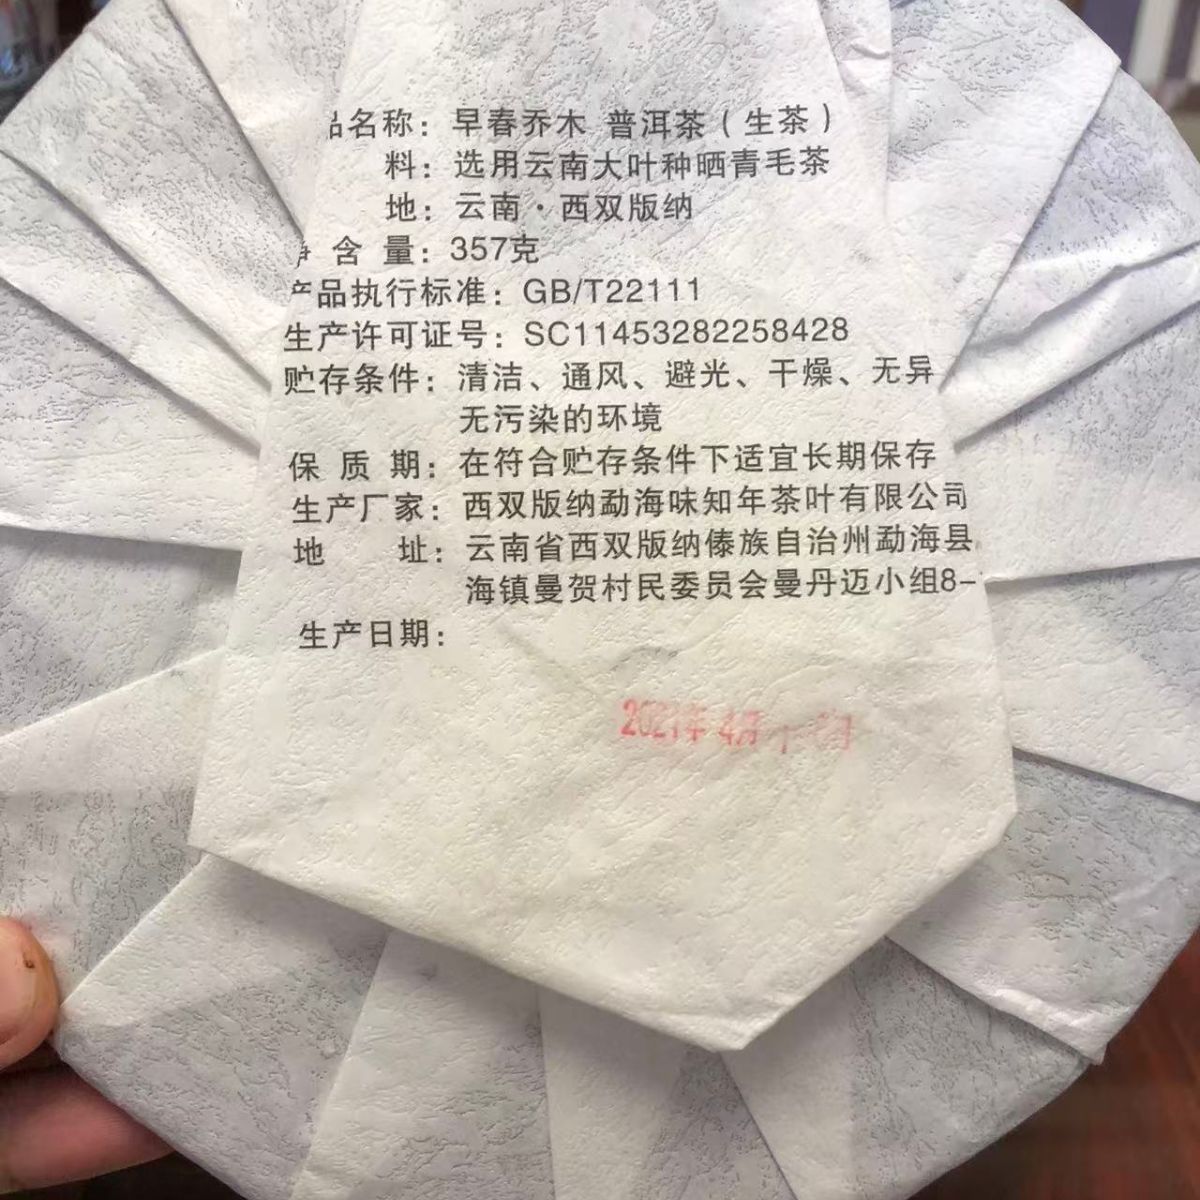 品名称：早春乔木 普洱茶（生茶）
料：选用云南大叶种晒青毛茶
地：云南·西双版纳
净 含 量：357克
产品执行标准：GB/T22111
生产许可证号：SC11453282258428
贮存条件：清洁、通风、避光、干燥、无异
无污染的环境
保 质 期：在符合贮存条件下适宜长期保存
生产厂家：西双版纳勐海味知年茶叶有限公司
地 址：云南省西双版纳傣族自治州勐海县
海镇曼贺村民委员会曼丹迈小组8-
生产日期：
2021年4月